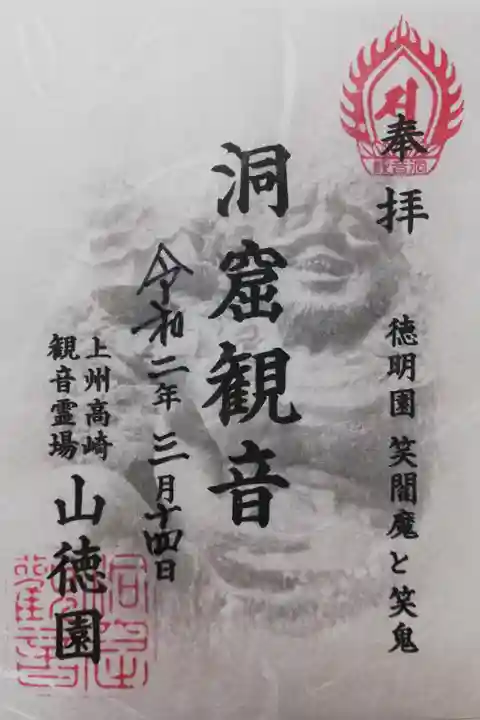 奉拝
徳明園 笑閻魔と笑鬼
洞窟観音
令和二年 三月十四日
上州高崎
観音霊場
山徳園